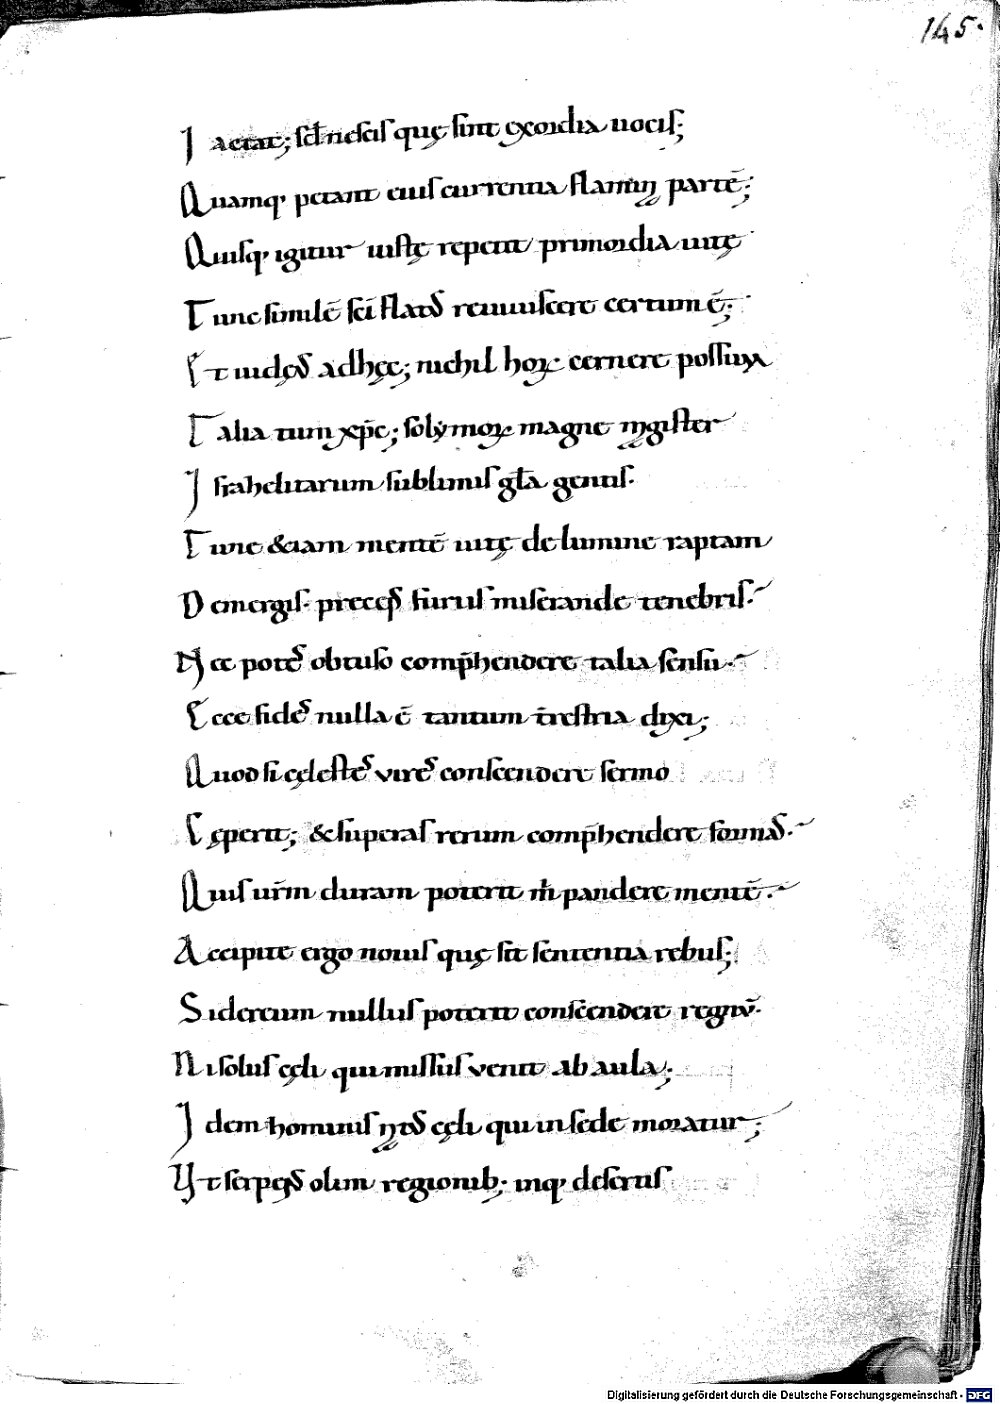 145.
Iactat; sed nescis quę sint exordia uocis;
Quamq; petant eius currentia flamiɲ partē;
Quisq; igitur iustę repetit primordia uitę
Tunc similē sci flatus reuiuiscere certum ē;
Et iudęus adhęc; nichil hoꝝ cernere possum
Talia tum xp̄c; solymoꝝ magne magister
Israhelitarum sublimis gl̄a gentis.
Tunc &iam mentē uitę de lumine raptam
Demergis. pręceps furuis miserande tenebris.
Nec potes obtuso comp̄hendere talia sensu.
Ecce fides nulla ē tantum t̄restria dixi;
Quod si cęlestes vires conscendere sermo
Cęperit; & superas rerum comp̄hendere formas.
Quis ur̄m duram poterit m̄ pandere mentē.
Accipite ergo nouis quę sit sententia rebus;
Sidereum nullus poterit conscendere regnū.
Ni solus cęli qui missus venit ab aula;
Idem hominis nat̄ cęli qui in sede moratur;
Vt serpens olim regionib; inq; desertis
Digitalisierung gefördert durch die Deutsche Forschungsgemeinschaft - DFG